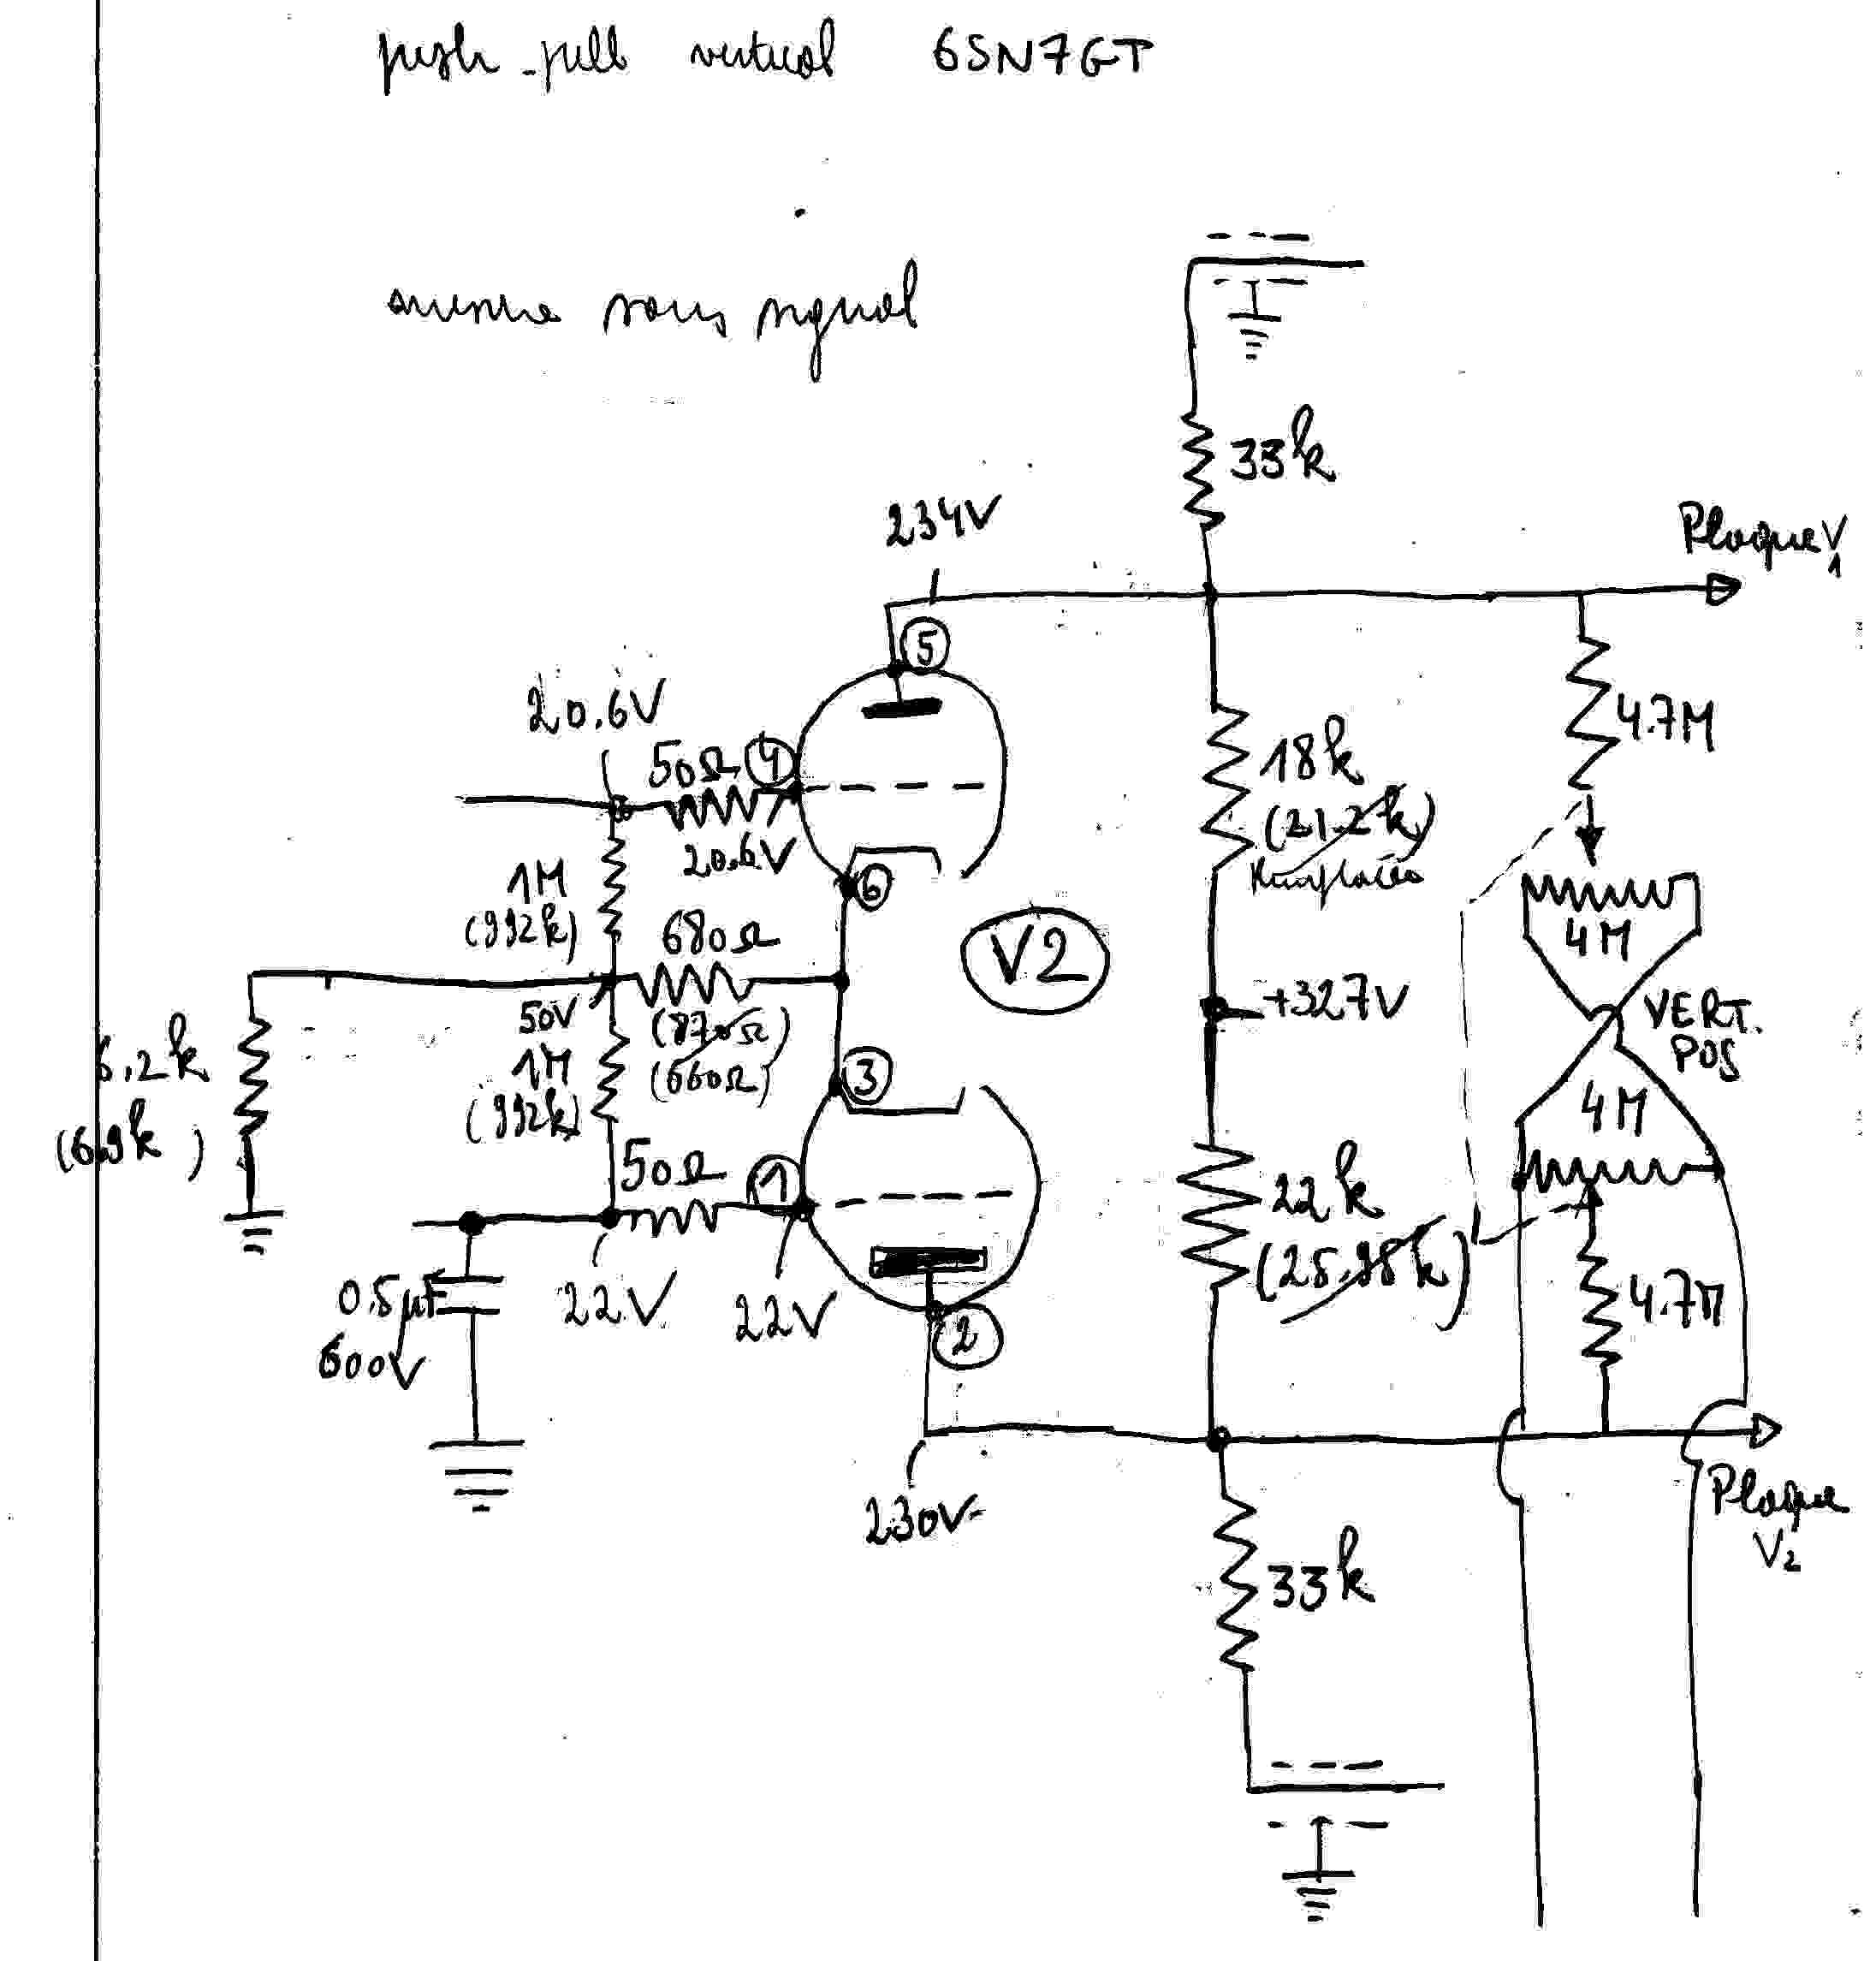 push-pull vertical 6SN7GT
mesure sans signal
33k
234V
Plaque V1
5
20.6V
50Ω 4
20.6V
18k
(21.2k)
Remplacée
4.7M
6
1M
(992k)
680Ω
V2
4M
50V
(870Ω)
(660Ω)
+327V
VERT.
POS
6.2k
(6.9k)
1M
(992k)
3
4M
50Ω 1
22k
(25.98k)
0.5µF
600V
22V
22V
2
4.7M
230V
Plaque
V2
33k